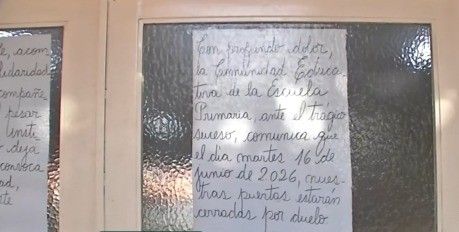 e, acom
lidaridad
compañe-
pesar
Insti
deja
convoca
ad,
te
Con profundo dolor,
la Comunidad Educa
tiva de la Escuela
Primaria, ante el trágico
suceso, comunica que
el día martes 16 de
junio de 2026, nues-
tras puertas estarán
cerradas por duelo